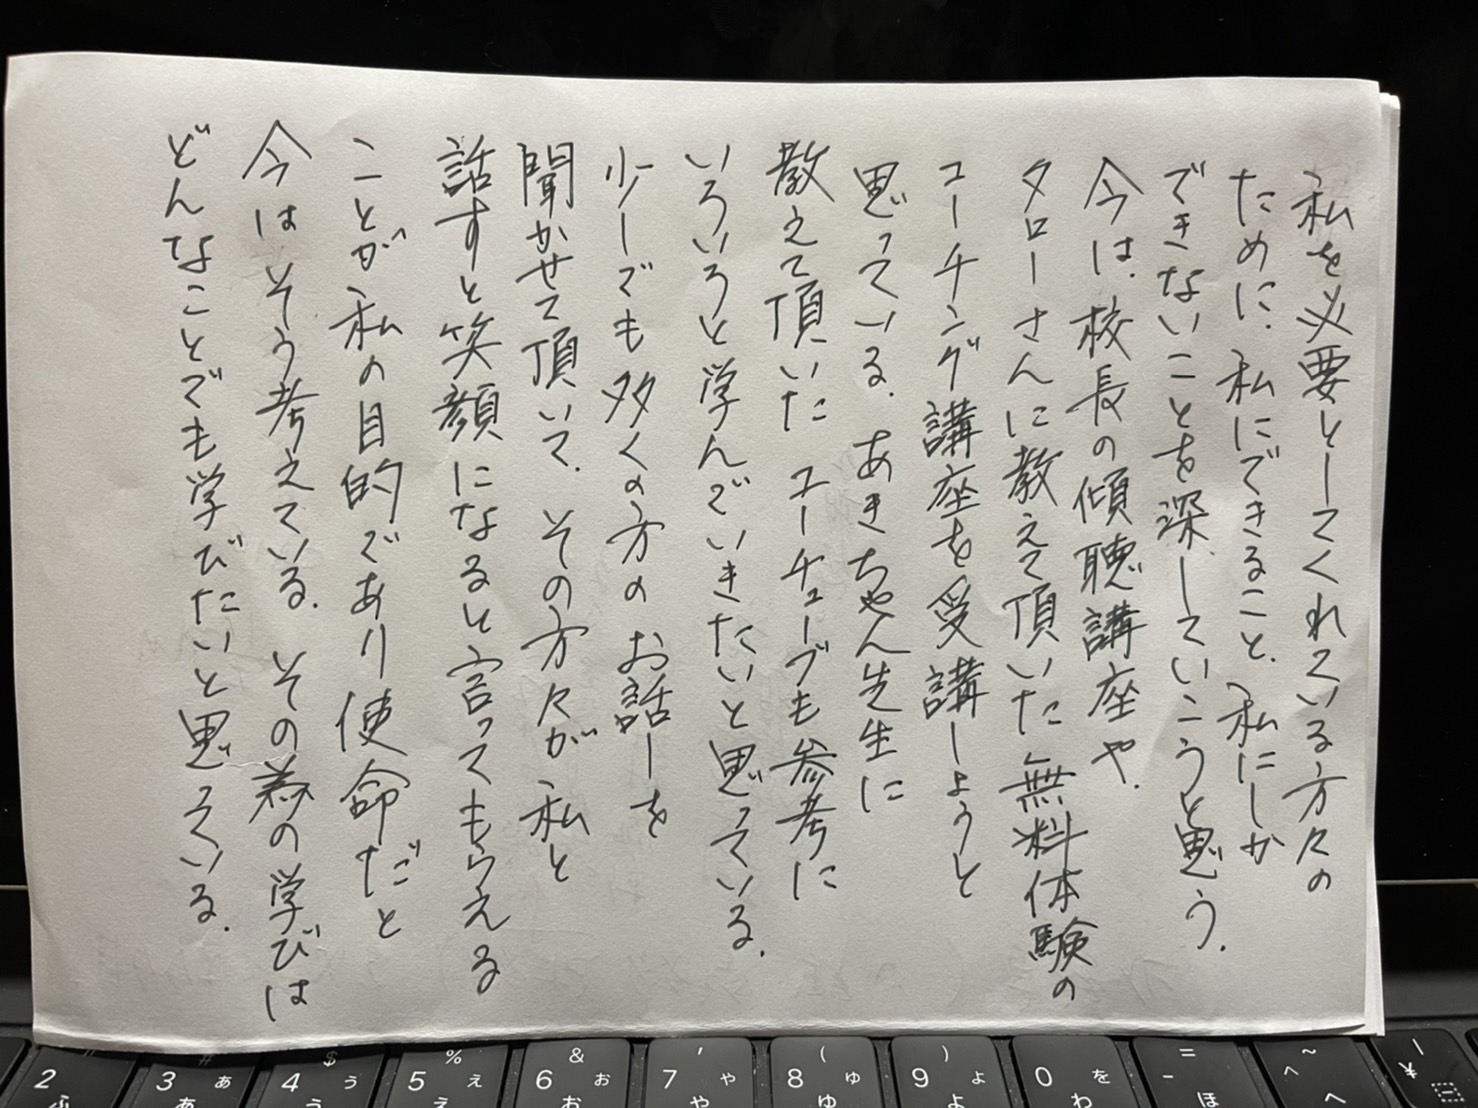 私を必要としてくれている方々の
ために、私にできること、私にしか
できないことを深していこうと思う。
今は、校長の傾聴講座や、
タローさんに教えて頂いた無料体験の
コーチング講座を受講しようと
思っている。あきちゃん先生に
教えて頂いたユーチューブも参考に
いろいろと学んでいきたいと思っている。
少しでも多くの方のお話しを
聞かせて頂いて、その方々が私と
話すと笑顔になると言ってもらえる
ことが私の目的であり使命だと
今はそう考えている。その為の学びは
どんなことでも学びたいと思っている。
2 ふ
# 3 ぁ あ
$ 4 ぅ う
% 5 ぇ え
& 6 ぉ お
' 7 ゃ や
( 8 ゅ ゆ
) 9 ょ よ
0 を わ
= - ほ
~ ^ へ
| ¥